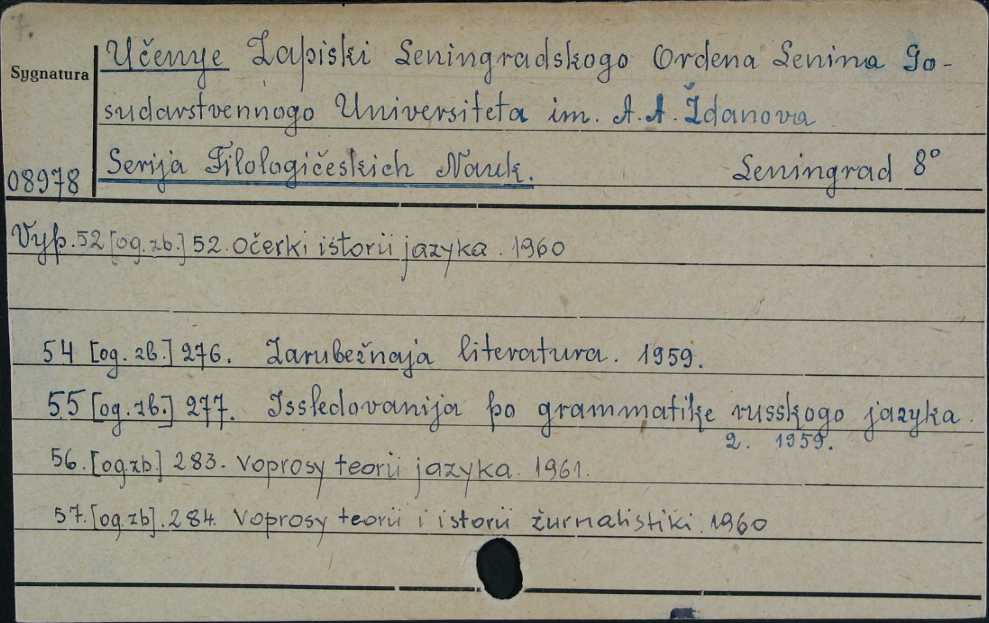 7.
Učenye Zapiski Leningradskogo Ordena Lenina Go-
Sygnatura
sudarstvennogo Universiteta im. A. A. Ždanova
08978 Serija Filologičeskich Nauk. Leningrad 8°
Vyp. 52 [og. zb.] 52. očerki istorii jazyka. 1960
54 [og. zb.] 276. Zarubežnaja literatura. 1959.
55 [og. zb.] 277. Issledovanija po grammatike russkogo jazyka.
2. 1959.
56. [og zb.] 283. Voprosy teorii jazyka. 1961.
57. [og zb]. 284. Voprosy teorii i istorii žurnalistiki. 1960